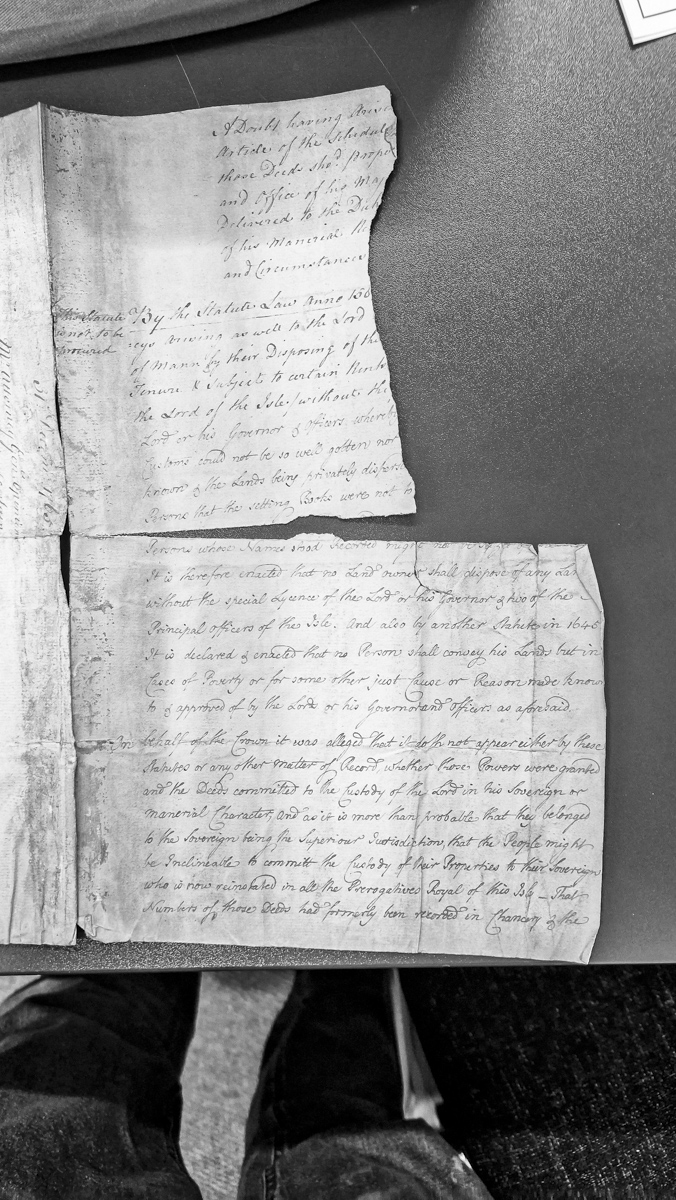 A Doubt having Arisen
Article of the Schedule
those Deeds sho.d prope
and Office of his Ma
Delivered to the Du
of his Manerial R
and Circumstances
This Statute
is not to be
procured
By the Statute Law Anno 15
=eys Arising as well to the Lord
of Mann by their Disposing of the
Tenure & Subject to certain Rents
the Lord of the Isle, without the
Lord or his Governor & Officers, whereby
Customs could not be so well gotten nor
known & the Lands being privately dispers
Persons that the setting Books were not to
Persons whose Names
It is therefore enacted that no Land owner shall dispose of any La
without the special Lycence of the Lord or his Governor & two of the
Principal Officers of the Isle. And also by another Statute in 1645
It is declared & enacted that no Person shall convey his Lands but in
Cases of Poverty or for some other just Cause or Reason made known
to & approved of by the Lord or his Governor and Officers as aforesaid.
In behalf of the Crown it was alleged that it doth not appear either by these
Statutes or any other matter of Record, whether those Powers were granted
and the Deeds committed to the Custody of the Lord in his Sovereign or
manerial Character, and as it is more than probable that they belonged
to the Sovereign being the Superiour Jurisdiction, that the People might
be Inclineable to committ the Custody of their Properties to their Sovereign
who is now reinstated in all the Prerogatives Royal of this Isle — That
Numbers of those Deeds had formerly been recorded in Chancery & the